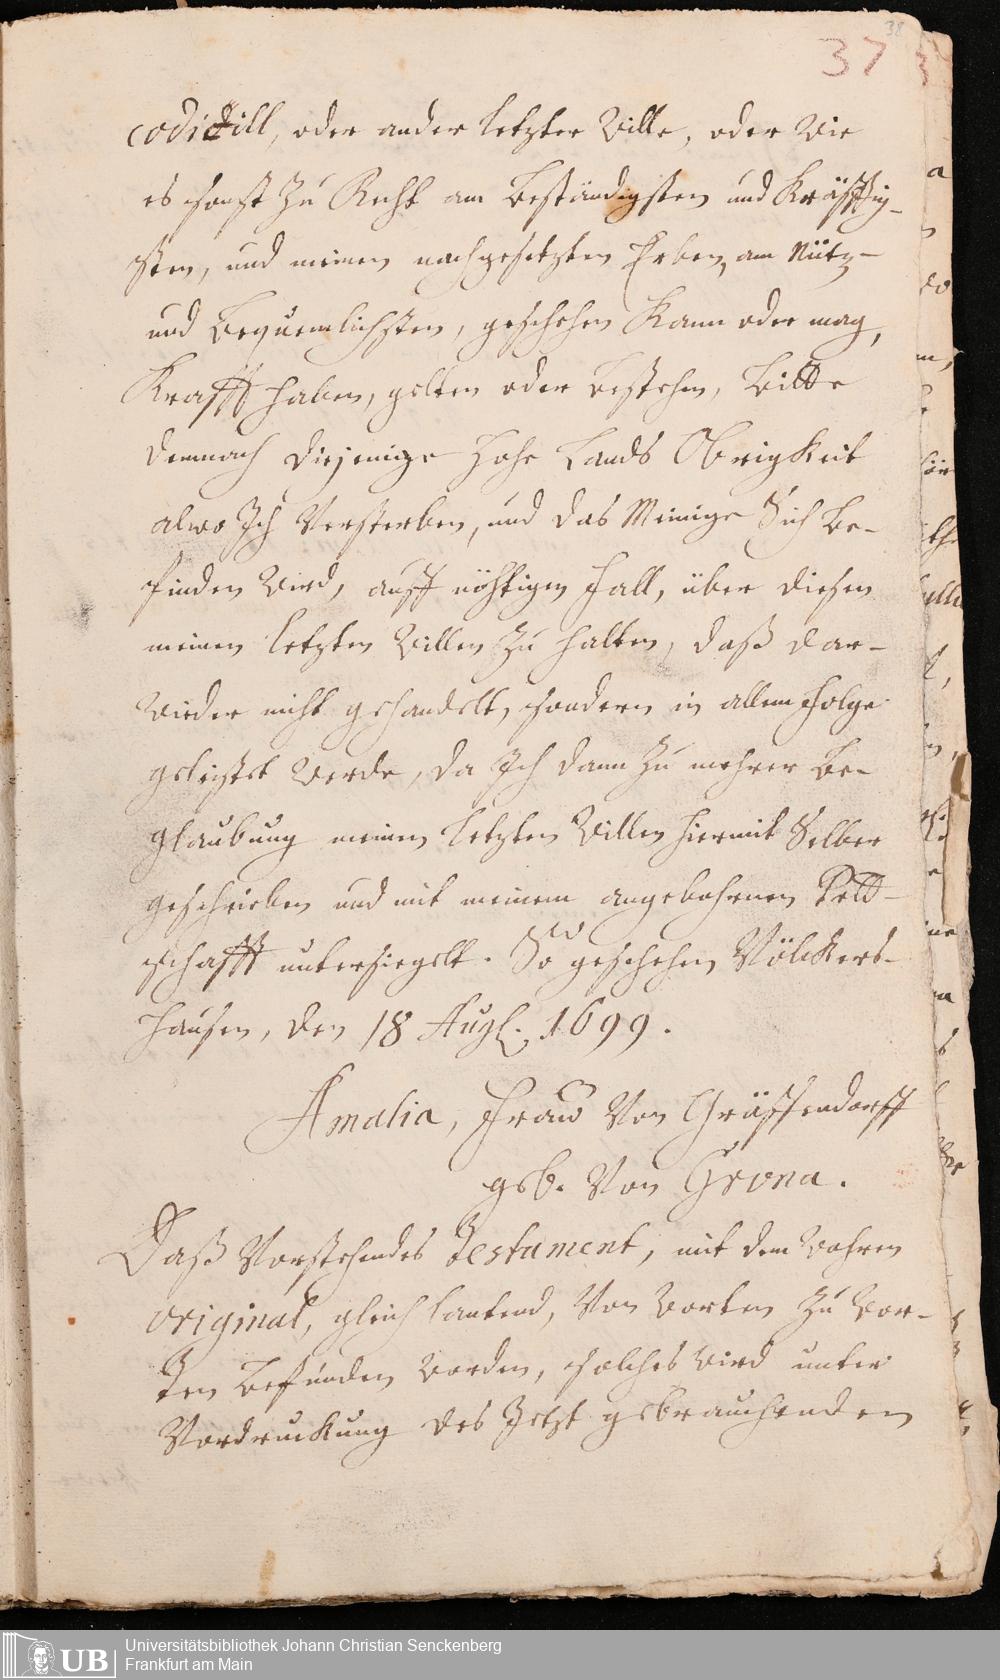 38
37
codicill, oder ander letzter Wille, oder wie
es sonst zu Recht am beständigsten und Kräfftig-
sten, und meinen nachgesetzten Erben, am Nütz-
und bequemlichsten, geschehen Kann oder mag,
Krafft haben, gelten oder bestehen, bitte
demnach diejenige Hohe Lands ObrigKeit
alwo Ich versterben, und das Meinige Sich be-
finden wird, auff nöhtigen fall, über diesen
meinen letzten Willen zu halten, daß dar-
wieder nicht gehandelt, sondern in allem folge
geleistet werde, da Ich dann zu mehrer be-
glaubung meinen letzten Willen hiermit Selber
geschrieben und mit meinem angebohrnen Pett-
schafft untersiegelt. So geschehen Völckers-
hausen, den 18 Augl. 1699.
Amalia, Fraw von Gräffendorff
geb. von Grona.
Daß vorstehendes Testament, mit dem wahren
Original, gleich lautend, von worten zu wor-
ten befunden worden, solches wird unter
Vordruckung des Jetzt gebrauchenden
UB
Universitätsbibliothek Johann Christian Senckenberg
Frankfurt am Main